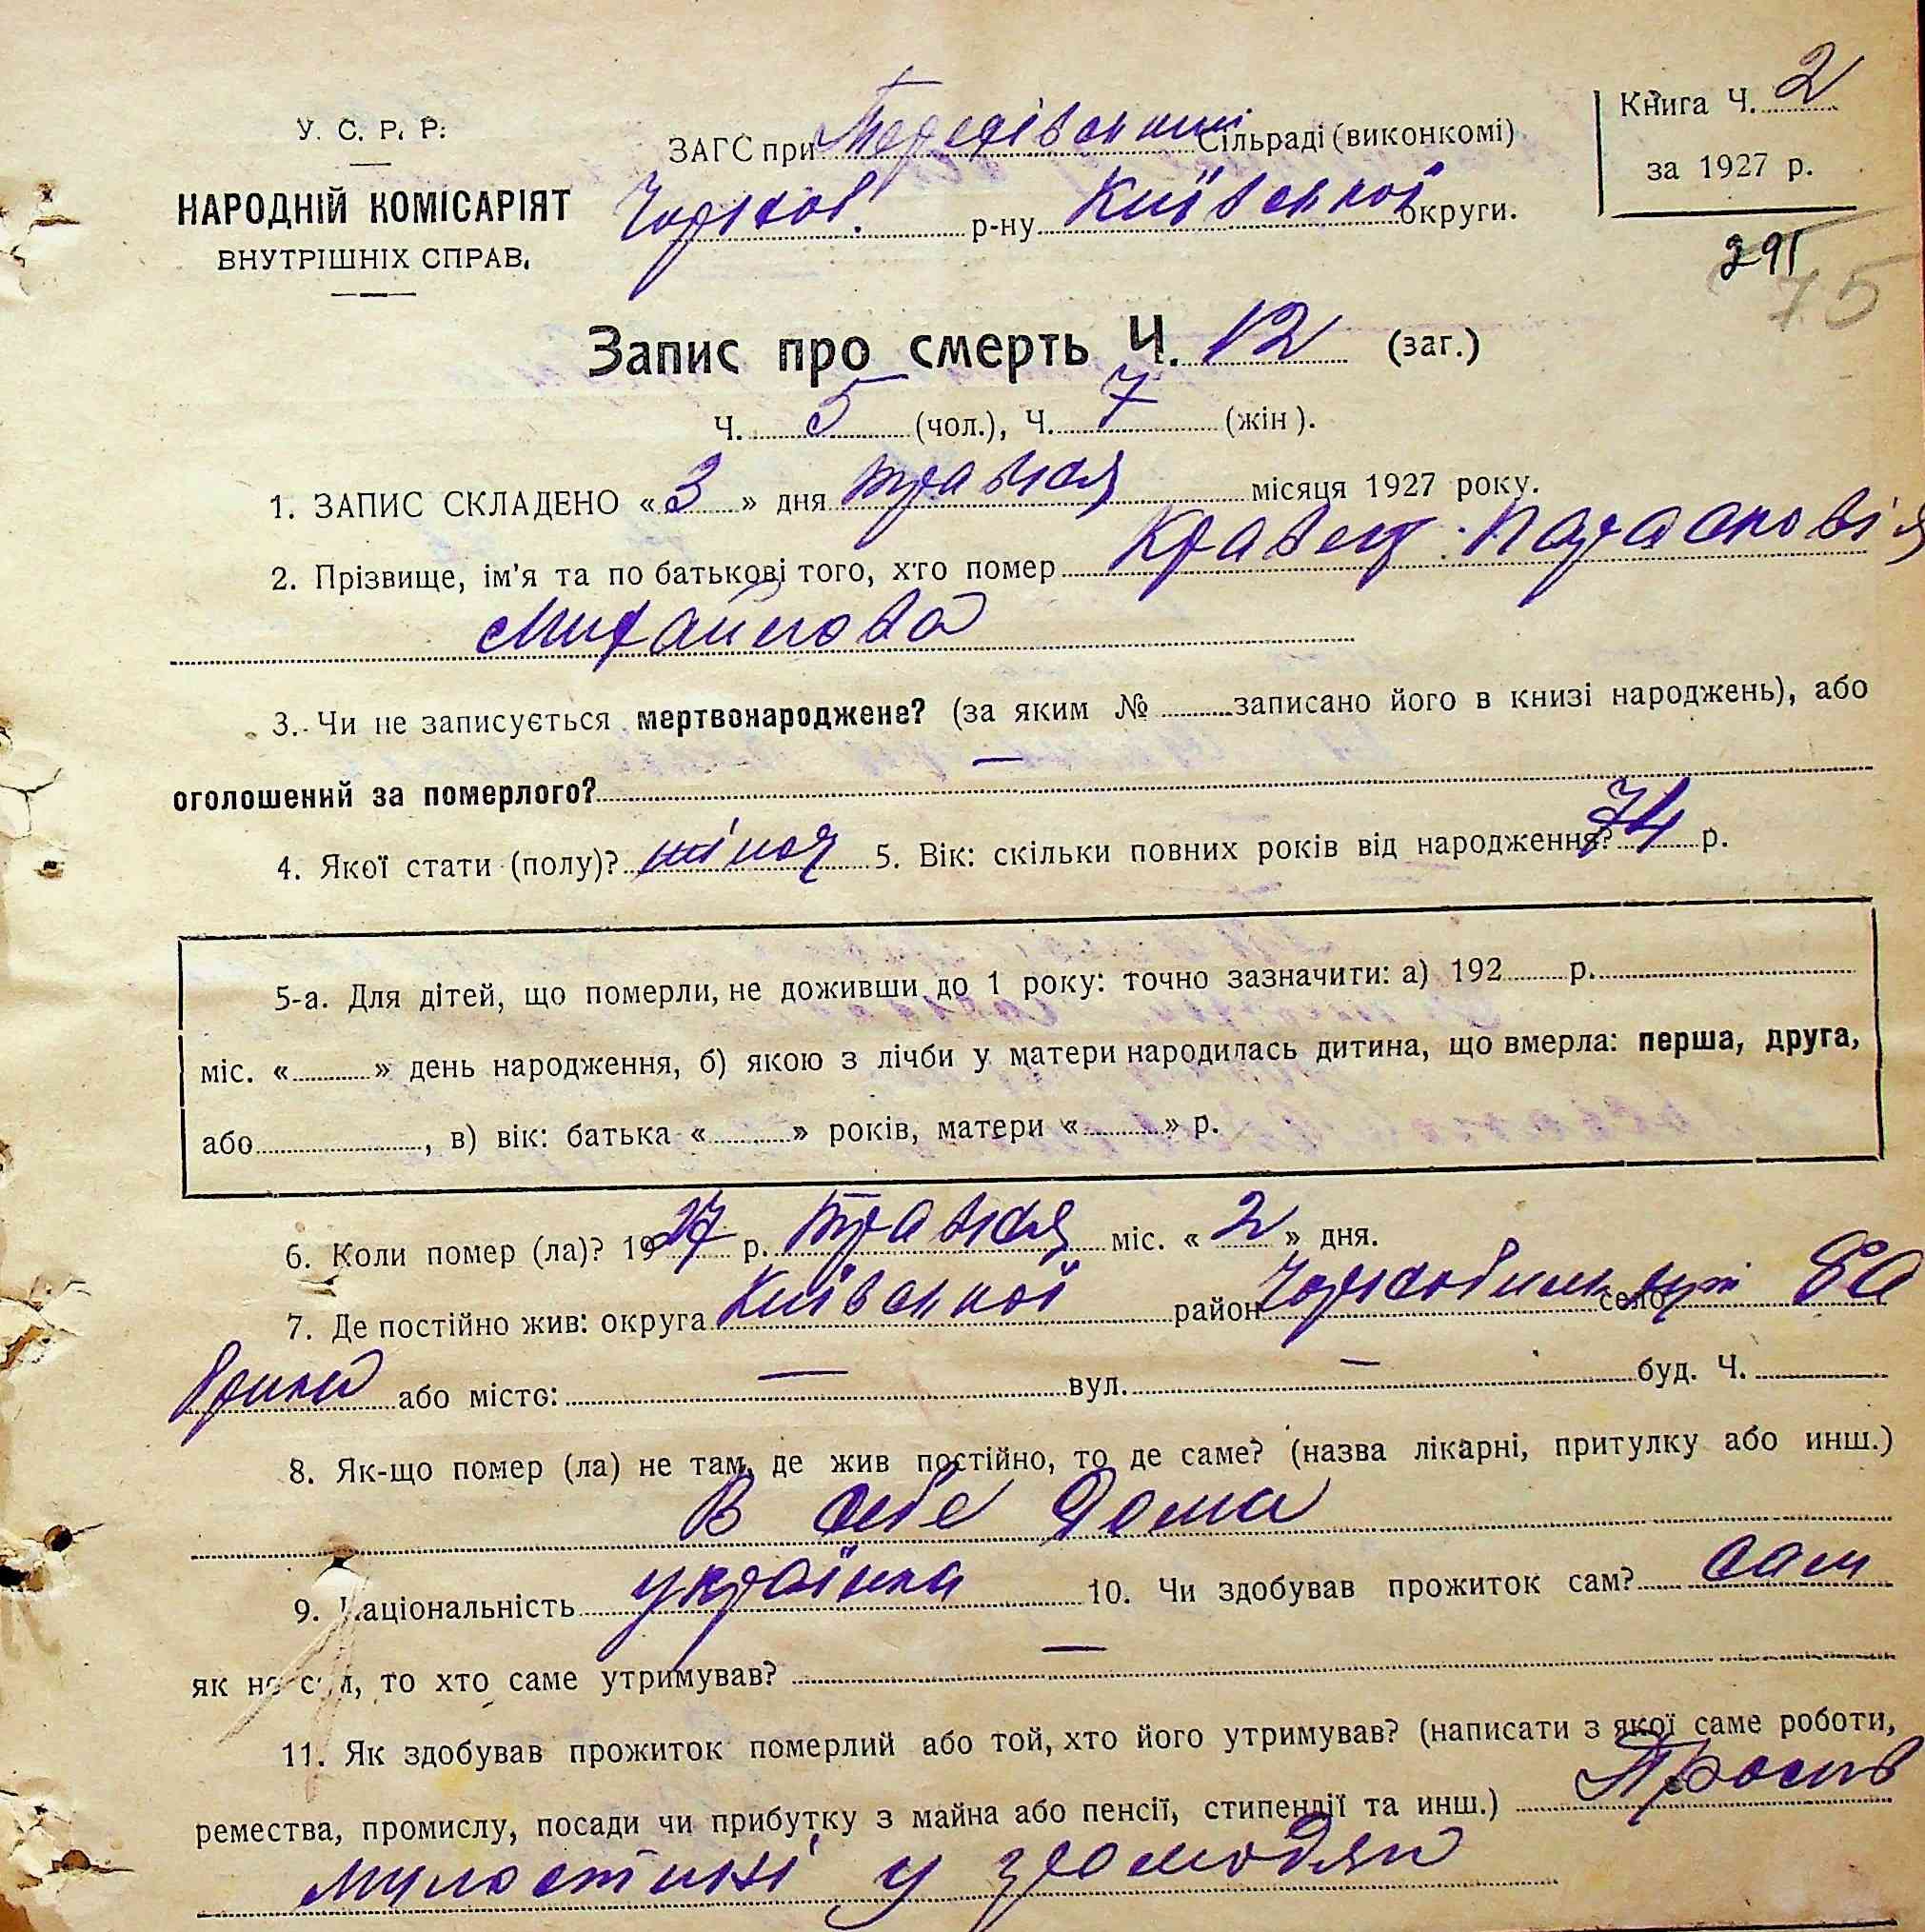 У. С. Р. Р.
НАРОДНІЙ КОМІСАРІЯТ
ВНУТРІШНІХ СПРАВ.
ЗАГС при Сільраді (виконкомі)
Чорноб. р-ну Київської округи.
Книга Ч. 2
за 1927 р.
291
75
Запис про смерть Ч. 12 (заг.)
Ч. 5 (чол.), Ч. 7 (жін).
1. ЗАПИС СКЛАДЕНО «3» дня травня місяця 1927 року.
2. Прізвище, ім'я та по батькові того, хто помер Кравец Парасковія
Михайлова
3. Чи не записується мертвонароджене? (за яким № записано його в книзі народжень), або
оголошений за померлого? —
4. Якої стати (полу)? жіноч 5. Вік: скільки повних років від народження? 74 р.
5-а. Для дітей, що померли, не доживши до 1 року: точно зазначити: а) 192 р.
міс. « » день народження, б) якою з лічби у матери народилась дитина, що вмерла: перша, друга,
або , в) вік: батька « » років, матери « » р.
6. Коли помер (ла)? 1927 р. травня міс. «2» дня.
7. Де постійно жив: округа Київської район село
або місто: — вул. — буд. Ч.
8. Як-що помер (ла) не там, де жив постійно, то де саме? (назва лікарні, притулку або инш.)
В себе дома
9. Національність українка 10. Чи здобував прожиток сам? сам
як не сам, то хто саме утримував? —
11. Як здобував прожиток померлий або той, хто його утримував? (написати з якої саме роботи,
ремества, промислу, посади чи прибутку з майна або пенсії, стипендії та инш.) Просив
милостині у громодян